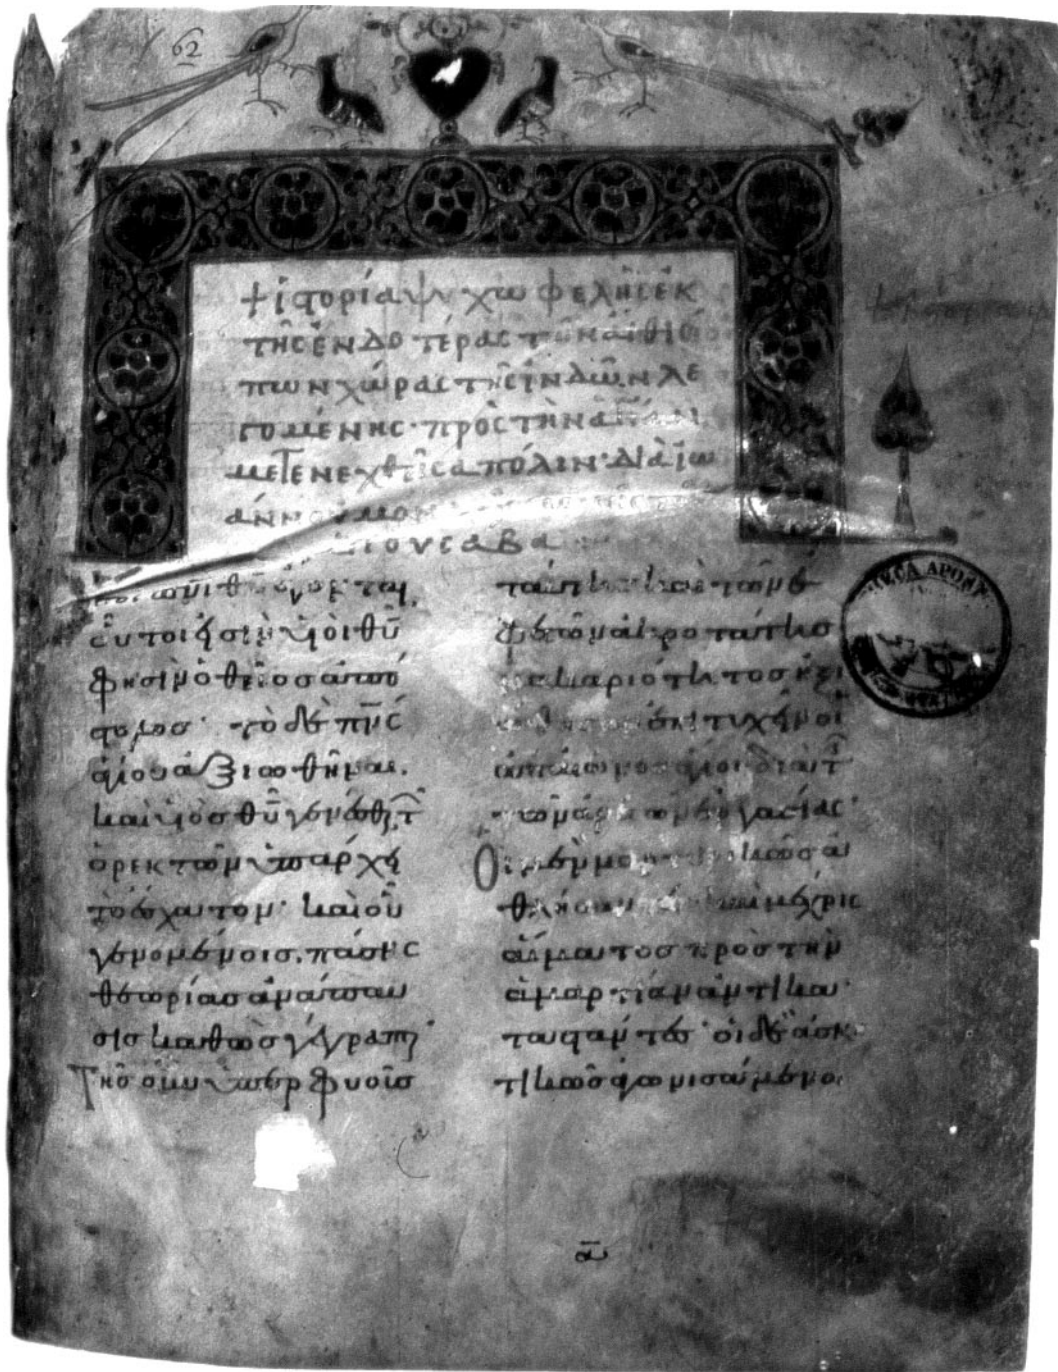 62
+ ἱστορία ψυχωφελὴς ἐκ
τῆς ἐνδοτέρας τῶν αἰθιό
πων χώρας τῆς ἰνδῶν λε
γομένης· πρὸς τὴν ἁγίαν
μετενεχθῆσα πόλιν· διὰ ἰω
άννου μον
σαβα
πνι θυ ἄγονται,
οὗτοι εἰσὶν υἱοὶ θυ
φησὶν ὁ θεῖος ἀπό
στολος· τὸ δὲ πνς
ἁγίου ἀξιωθῆναι.
καὶ υἱοὺς θυ γενέσθαι, τῶν
ὀρεκτῶν ὑπάρχει
τὸ ἔσχατον· καὶ οὗ
γενομένοις, πάσης
θεωρίας ἀνάπαυ
σις καθὼς γέγραπται·
Τῆς οὖν ὑπερφυοῦς
ταύτης καὶ τῶν ἐ
φετῶν ἀκροτάτης
μακαριότητος ἠξι
ώθησαν ἐπιτυχεῖν οἱ
ἀπαιῶνος ἅγιοι διὰ τῆς
τῶν ἀρετῶν ἐργασίας·
Οἱ μὲν μαρτυρικῶς ἀ
θλήσαντες καὶ μέχρις
αἵματος πρὸς τὴν
ἁμαρτίαν ἀντικα
ταστάντες· οἱ δὲ ἀσκη
τικῶς ἀγωνισάμενοι
α